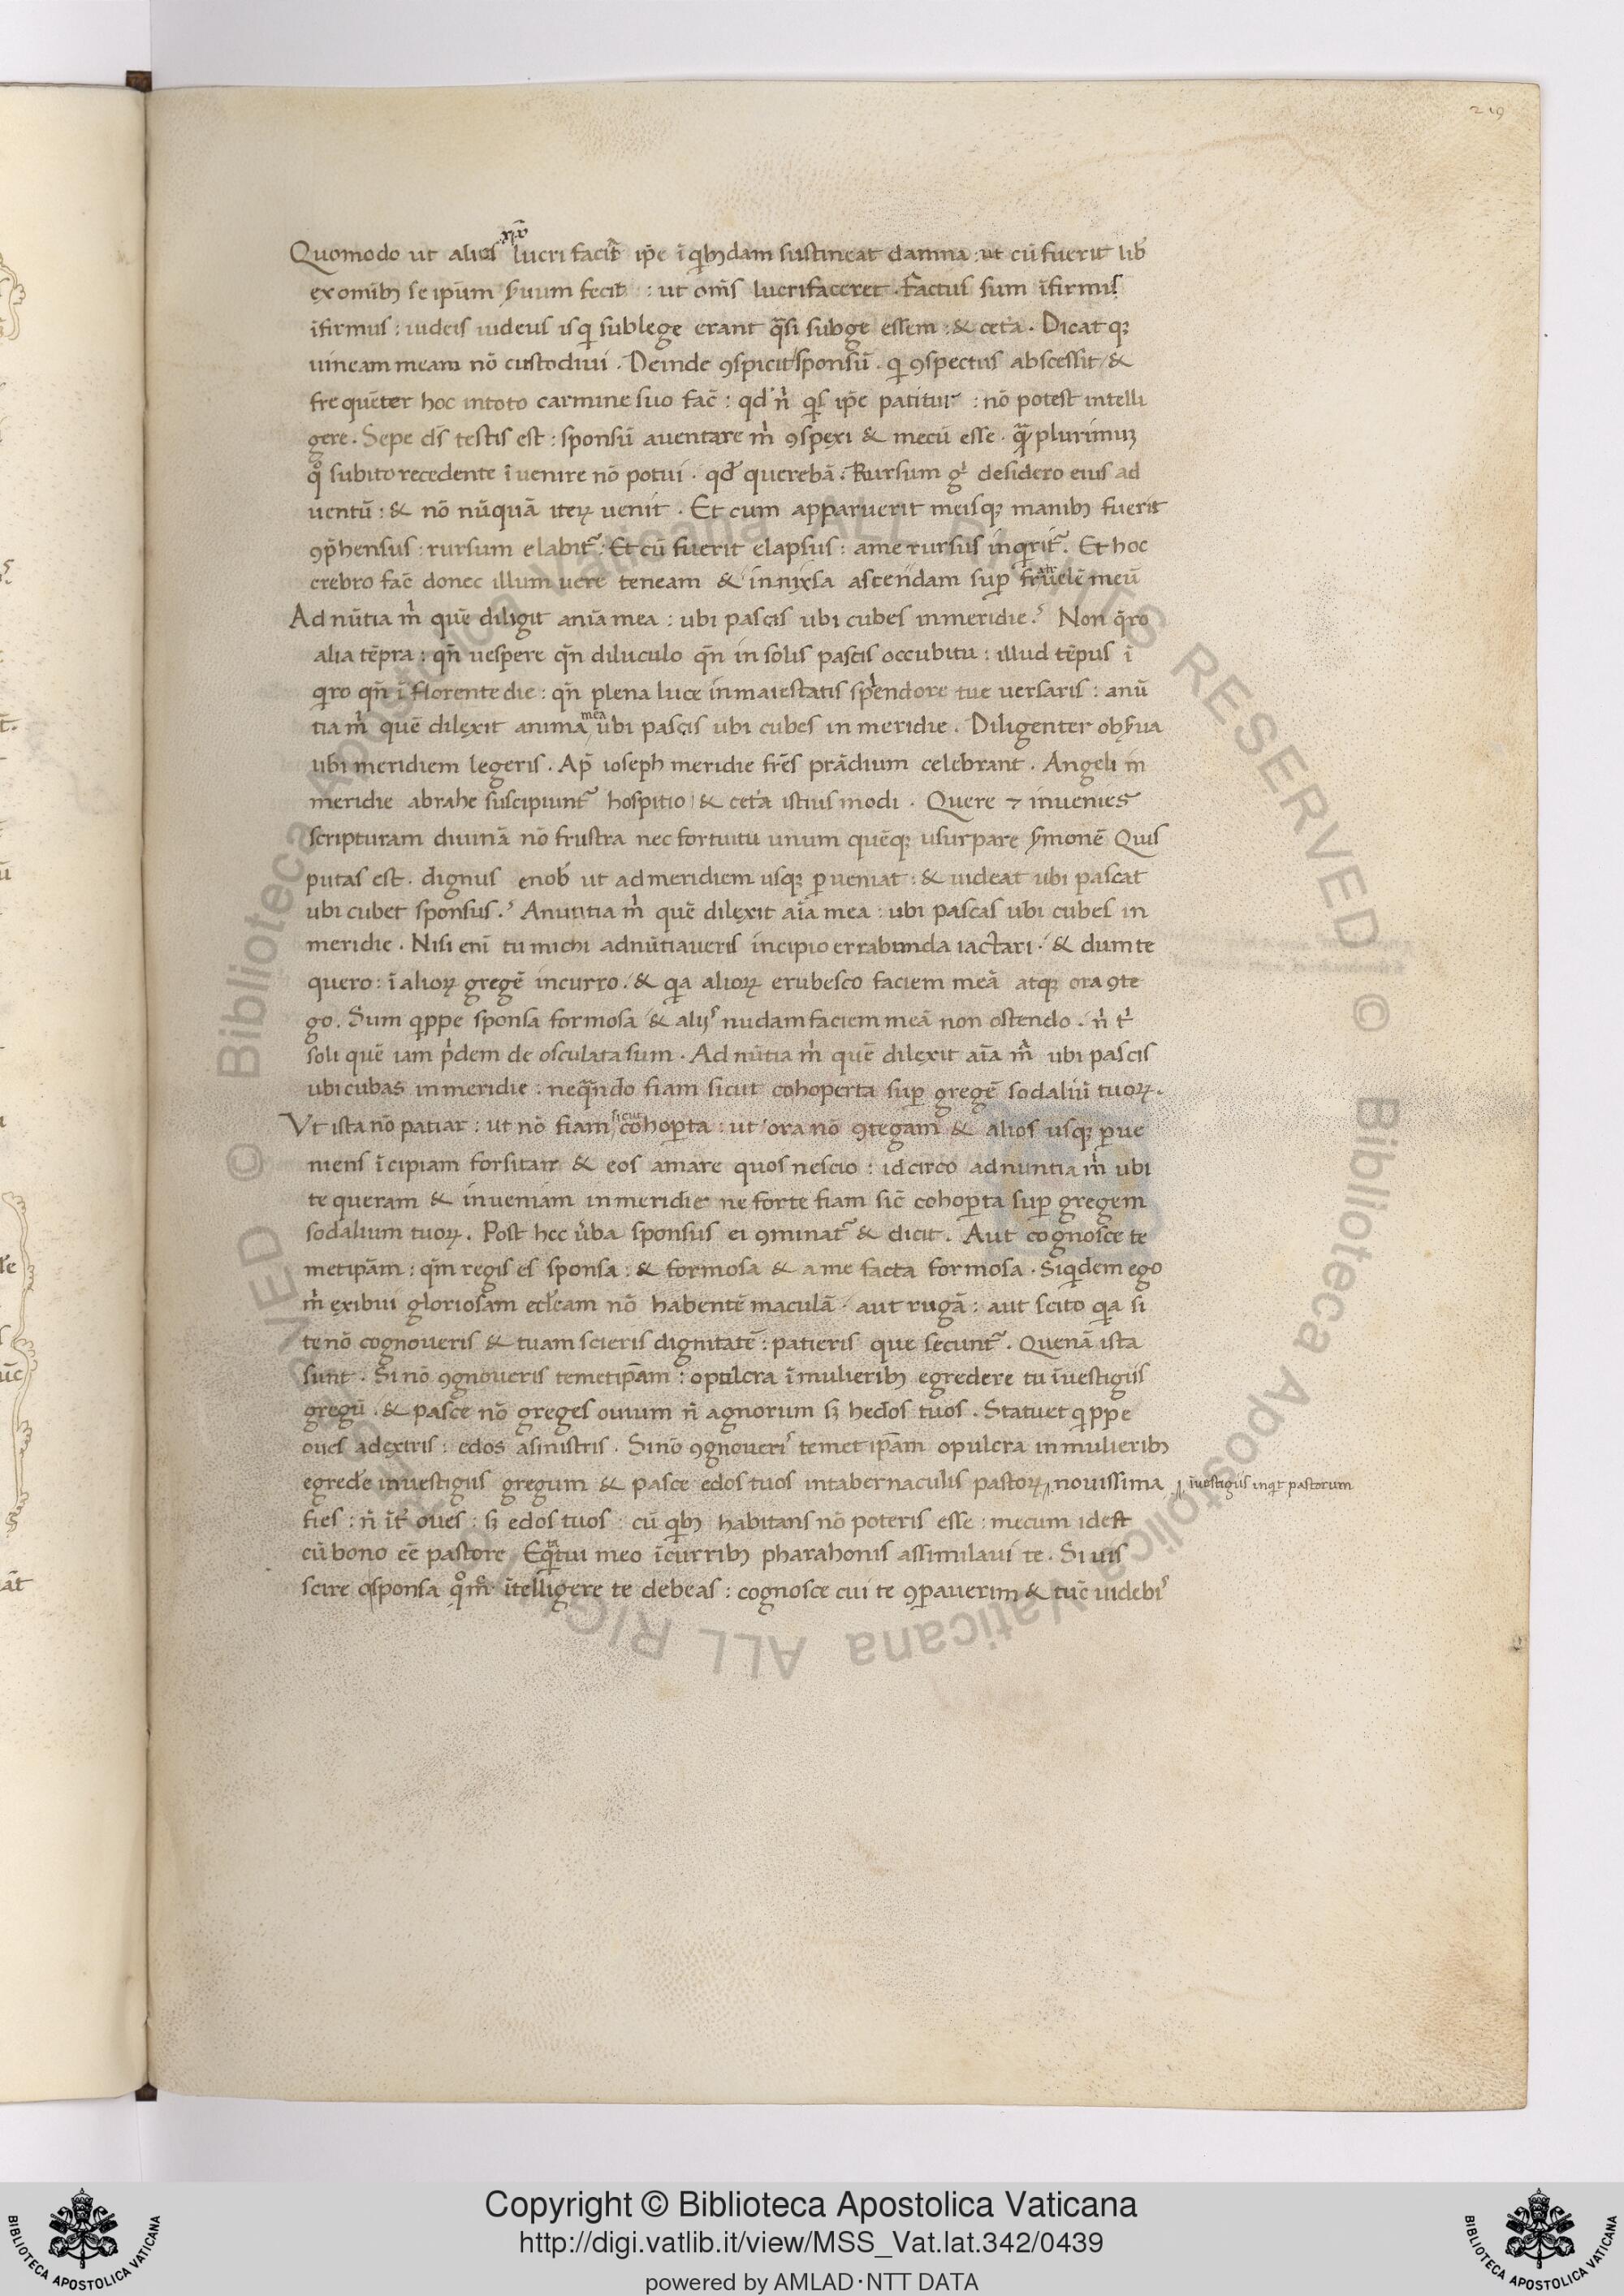 219
Quomodo ut alios xp̄o lucri facit᷑ ip̄e ī qͥbꝫdam sustineat damna : ut cū fuerit lib̄
ex omībꝫ se ip̄um s̄uum fecit : ut om̄s lucrifaceret . Factus sum īfirmis
īfirmus : iudeis iudeus is qͥ sub lege erant qᷓsi sub lege essem : & cet̄a . Dicat qꝫ
uineam meam nō custodiui . Deinde ꝯspicit sponsū . qͥ ꝯspectus abscessit & 
frequēter hoc in toto carmine suo fac̄ : qd̄ n̄ qͥs ip̄e patitur : nō potest intelli
gere . Sepe ds̄ testis est : sponsū auentare m̄ ꝯspexi & mecū esse . qᷓ plurimuꝫ
qͦ subito recedente īuenire nō potui . qd̄ querebā . Rursum gͥ desidero eius ad
uentū : & nō nūquā iteꝝ uenit . Et cum apparuerit meisqꝫ manibꝫ fuerit
ꝯp̄hensus : rursum elabit᷑ . Et cū fuerit elapsus : a me rursus inqͥrit᷑ . Et hoc
crebro fac̄ donec illum uere teneam & innixsa ascendam suꝑ frat̄uelē meū
Ad nūtia m̄ quē diligit anīa mea : ubi pascis ubi cubes in meridie ? Non q̄ro
alia tēpra : qn̄ uespere qn̄ diluculo qn̄ in solis pascis occubitu : illud tēpus ī
qͥro qn̄ ī florente die : qn̄ plena luce in maiestatis splendore tue uersaris : anū
tia m̄ quē dilexit anima mea ubi pascis ubi cubes in meridie . Diligenter obs̄ua
ubi meridiem legeris . Ap̄ ioseph meridie fr̄es prādium celebrant . Angeli in
meridie abrahe suscipiunt᷑ hospitio & cet̄a istius modi . Quere ⁊ inuenies
scripturam diuinā nō frustra nec fortuitu unum quēqꝫ usurpare s̄monē Quis
putas est . dignus e nob̄ ut ad meridiem usqꝫ ꝑueniat : & uideat ubi pascat
ubi cubet sponsus ? Anuntia m̄ quē dilexit aīa mea : ubi pascas ubi cubes in
meridie . Nisi enī tu michi adnūtiaueris incipio errabunda iactari . & dum te
quero : ī alioꝝ gregē incurro . & qͥa alioꝝ erubesco faciem meā atqꝫ ora ꝯte
go . Sum qͥppe sponsa formosa & alijs nudam faciem meā non ostendo . n̄ tͥ
soli quē iam pͥdem de osculata sum . Ad nūtia m̄ quē dilexit aīa m̄ ubi pascis
ubi cubas in meridie : ne qᷓndo fiam sicut cohoperta suꝑ gregē sodaliū tuoꝝ .
Vt ista nō patiar : ut nō fiam sicut cohoꝑta : ut ora nō ꝯtegam & alios usqꝫ ꝑue
niens īcipiam forsitan & eos amare quos nescio : idcirco adnuntia m̄ ubi
te queram & inueniam in meridie ne forte fiam sic̄ cohoꝑta suꝑ gregem
sodalium tuoꝝ . Post hec ūba sponsus ei ꝯminat᷑ & dicit . Aut cognosce te
metip̄am : qm̄ regis es sponsa : & formosa & a me facta formosa . Siqͥdem ego
m̄ exibui gloriosam eccl̄eam nō habentē maculā . aut rugā : aut scito qͥa si
te nō cognoueris & tuam scieris dignitatē : patieris que secunt᷑ . Quenā ista
sunt . Si nō ꝯgnoueris temetip̄am : o pulcra ī mulieribꝫ egredere tu ī uestigiis
gregū . & pasce nō greges ouium n̄ agnorum sꝫ hedos tuos . Statuet qͥppe
oues a dextris : edos a sinistris . Si nō ꝯgnoueris temet ip̄am o pulcra in mulieribꝫ
egred̄e in uestigiis gregum & pasce edos tuos in tabernaculis pastoꝝ // nouissima // ī uestigiis inqͥt pastorum
fies : n̄ īt̄ oues : sꝫ edos tuos : cū qͥbꝫ habitans nō poteris esse : mecum idest
cū bono eē pastore Eqͥtatui meo ī curribꝫ pharahonis assimilaui te . Si uis
scire o sponsa qͦm̄ ītelligere te debeas : cognosce cui te ꝯꝑauerim & tūc uidebis
Copyright © Biblioteca Apostolica Vaticana
http://digi.vatlib.it/view/MSS_Vat.lat.342/0439
powered by AMLAD·NTT DATA
BIBLIOTECA APOSTOLICA VATICANA
BIBLIOTECA APOSTOLICA VATICANA